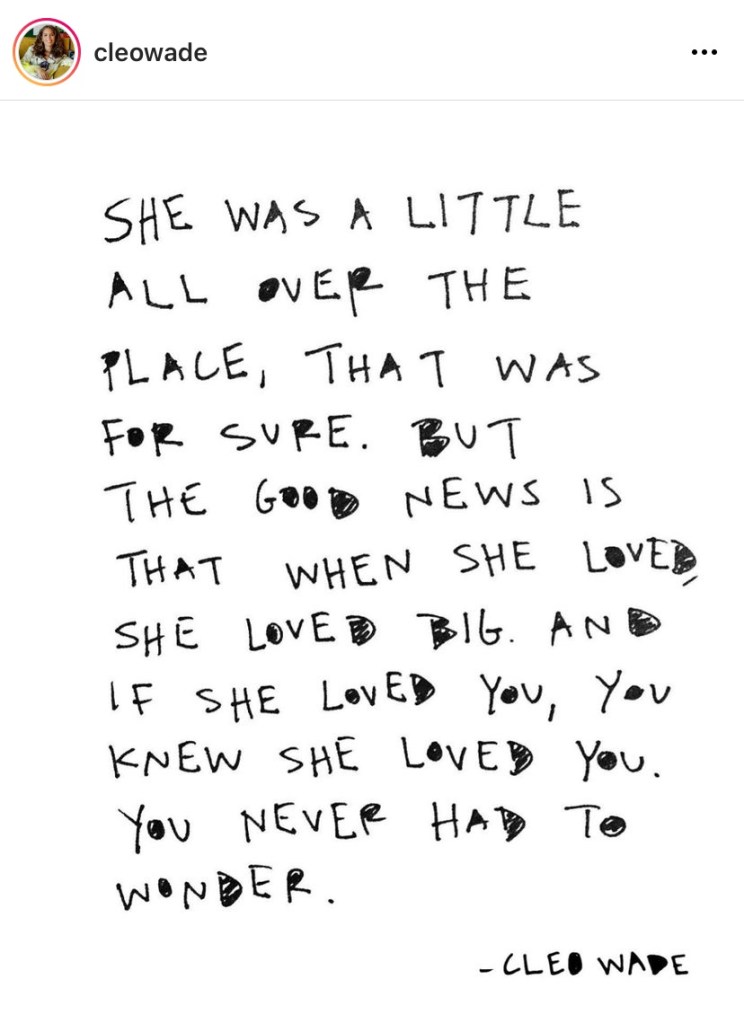 cleowade
SHE WAS A LITTLE
ALL OVER THE
PLACE, THAT WAS
FOR SURE. BUT
THE GOOD NEWS IS
THAT WHEN SHE LOVED,
SHE LOVED BIG. AND
IF SHE LOVED YOU, YOU
KNEW SHE LOVED YOU.
YOU NEVER HAD TO
WONDER.
- CLEO WADE